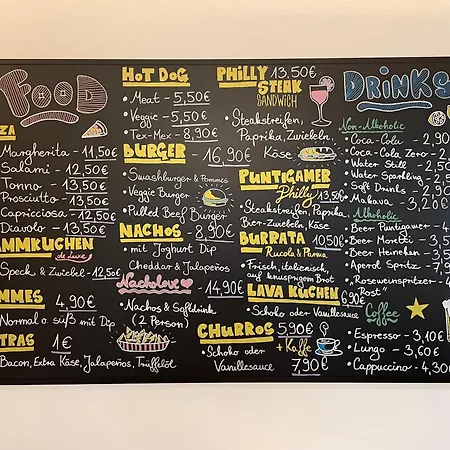 FOOD
ZA
Margherita - 11,50€
Salami - 12,50€
Tonno - 13,50€
Prosciutto - 13,50€
Capricciosa - 12,50€
Diavolo - 13,50€
AMMKUCHEN
de luxe
Speck & Zwiebel - 12,50€
MMES 4,90€
Normal o. süß mit Dip
TRAS 1€
Bacon, Extra Käse, Jalapeños, Trüffelöl
HOT DOG
• Meat - 5,50€
• Veggie - 5,50€
• Tex-Mex - 8,90€
BURGER 16,90€
• Smashburger & Pommes
• Veggie Burger
• Pulled Beef Burger
NACHOS 8,90€
• mit Joghurt Dip
Cheddar & Jalapeños
Nacholove 14,90€
• Nachos & Softdrink
(2 Person)
CHURROS 5,90€
• Schoko oder + Kaffe
Vanillesauce 7,90€
PHILLY 13,50€
STEAK
SANDWICH
• Steakstreifen,
Paprika, Zwiebeln,
Käse
PUNTIGAMER
Philly 13,50€
• Steakstreifen, Paprika
Bier-Zwiebeln, Käse
BURRATA 10,50€
Rucola & Parma
• Frisch, italienisch,
auf knusprigem Brot
LAVA KUCHEN
6,90€
• Schoko oder Vanillesauce
DRINKS
Non-Alkoholic
• Coca-Cola - 2,90
• Coca-Cola Zero - 2
• Water Still - 2
• Water Sparkling
• Soft Drinks - 2
• Makava - 3,20€
Alkoholic
• Beer Puntigamer - 4
• Beer Moretti - 3,5
• Beer Heineken - 3
• Aperol Spritz - 7,
• Roseweinspritzer -
Coffee
• Espresso - 3,10€
• Lungo - 3,60€
• Cappuccino - 4,30